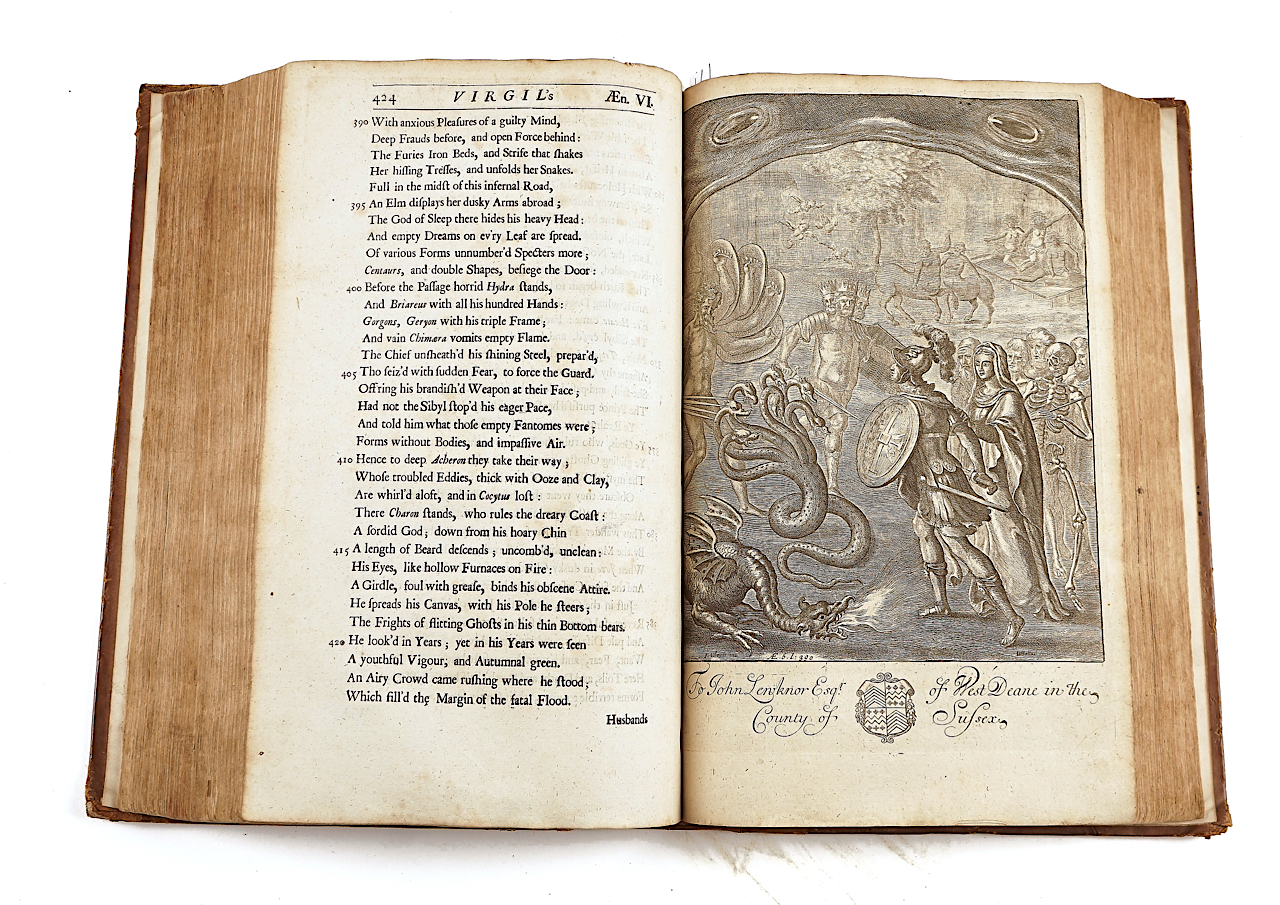 424 VIRGIL's Æn. VI.
390 With anxious Pleaſures of a guilty Mind,
Deep Frauds before, and open Force behind:
The Furies Iron Beds, and Strife that ſhakes
Her hiſſing Treſſes, and unfolds her Snakes.
Full in the midſt of this infernal Road,
395 An Elm diſplays her dusky Arms abroad;
The God of Sleep there hides his heavy Head:
And empty Dreams on ev'ry Leaf are ſpread.
Of various Forms unnumber'd Specters more;
Centaurs, and double Shapes, beſiege the Door:
400 Before the Paſſage horrid Hydra ſtands,
And Briareus with all his hundred Hands:
Gorgons, Geryon with his triple Frame;
And vain Chimæra vomits empty Flame.
The Chief unſheath'd his ſhining Steel, prepar'd,
405 Tho ſeiz'd with ſudden Fear, to force the Guard.
Off'ring his brandiſh'd Weapon at their Face;
Had not the Sibyl ſtop'd his eager Pace,
And told him what thoſe empty Fantomes were;
Forms without Bodies, and impaſſive Air.
410 Hence to deep Acheron they take their way;
Whoſe troubled Eddies, thick with Ooze and Clay,
Are whirl'd aloft, and in Cocytus loſt:
There Charon ſtands, who rules the dreary Coaſt:
A ſordid God; down from his hoary Chin
415 A length of Beard deſcends; uncomb'd, unclean:
His Eyes, like hollow Furnaces on Fire:
A Girdle, foul with greaſe, binds his obſcene Attire.
He ſpreads his Canvas, with his Pole he ſteers;
The Frights of flitting Ghoſts in his thin Bottom bears.
420 He look'd in Years; yet in his Years were ſeen
A youthful Vigour, and Autumnal green.
An Airy Crowd came ruſhing where he ſtood;
Which fill'd the Margin of the fatal Flood.
Husbands
Æ. 6. l. 390
To John Lenſknor Esqr. of West Deane in the
County of Suſsex